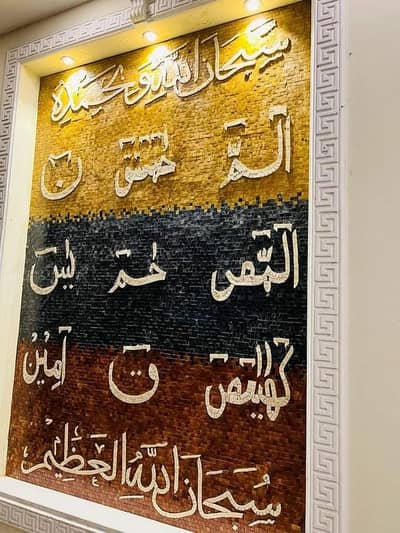 سُبْحَانَ اللهِ وَبِحَمْدِهِ
الٓمّٓ حٓمٓعٓسٓقٓ نٓ
الٓمّٓصٓ حٰمٓ يٰسٓ
كٓهٰيٰعٓصٓ قٓ اٰمِيْن
سُبْحَانَ اللهِ الْعَظِيْمِ